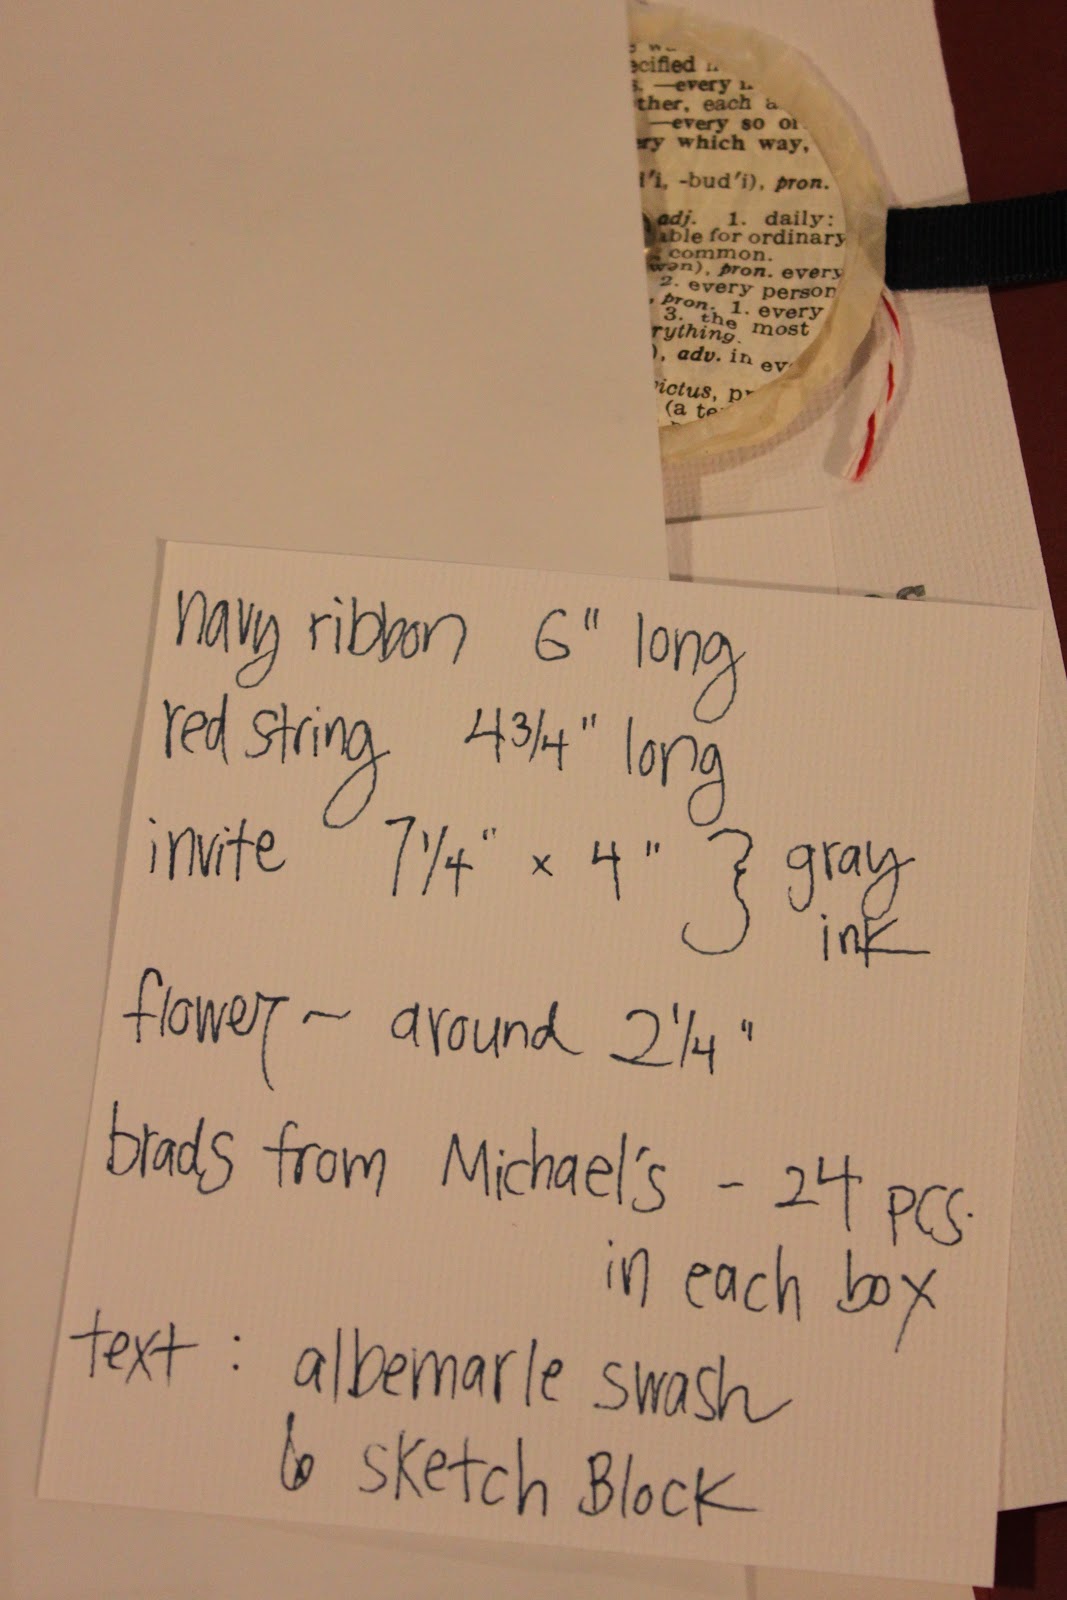 ecified
—every
ther, each
—every so
which way,
-bud'i), pron.
adj. 1. daily:
for ordinary
common.
pron. every
2. every person
pron. 1. every
3. the most
adv. in
(a
navy ribbon 6" long
red string 4 3/4" long
invite 7 1/4" x 4" } gray
ink
flower ~ around 2 1/4"
brads from Michael's - 24 pcs.
in each box
text : albemarle swash
& sketch Block